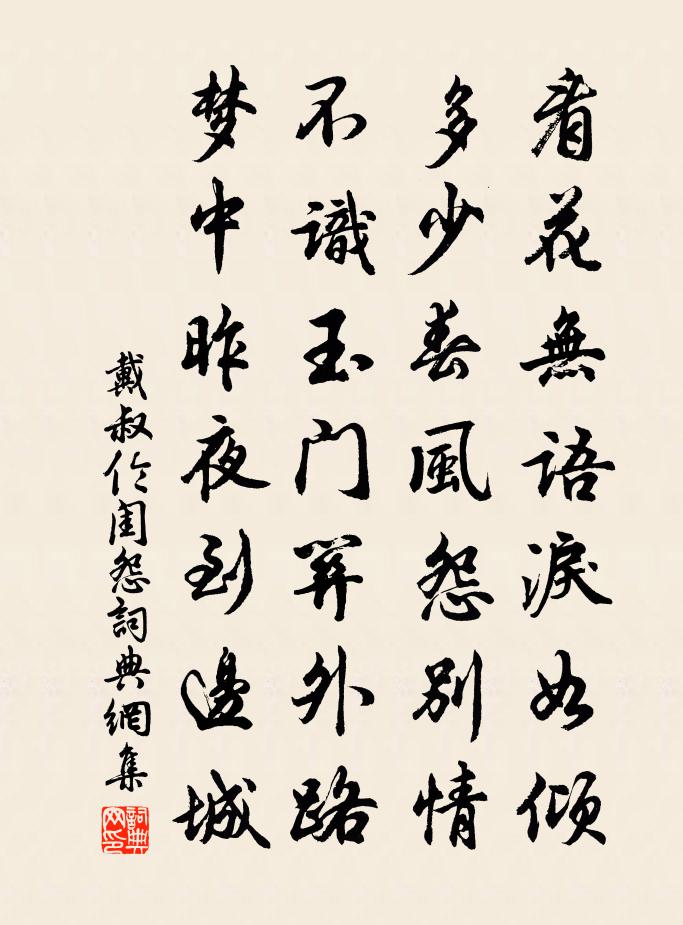 看花無語淚如傾
多少春風怨別情
不識玉门關外路
梦中昨夜到邊城
戴叔伦闺怨詞典網集
詞典网印